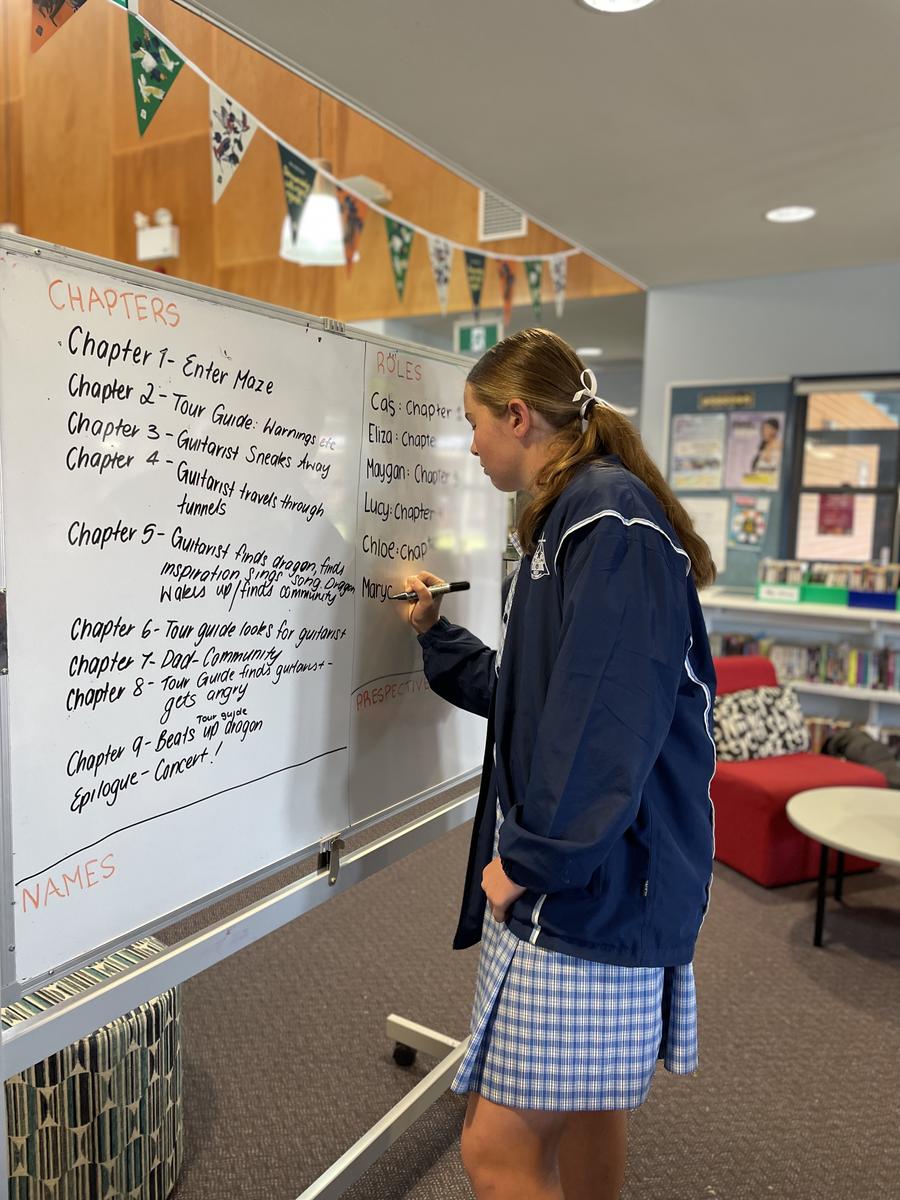 CHAPTERS
Chapter 1- Enter Maze
Chapter 2- Tour Guide: Warnings etc
Chapter 3 - Guitarist Sneaks Away
Chapter 4 - Guitarist travels through
tunnels
Chapter 5- Guitarist finds dragon, finds
inspiration, sings song. Dragon
wakes up/finds community
Chapter 6- Tour guide looks for guitarist
Chapter 7- Dad- Community
Chapter 8- Tour Guide finds guitarist -
gets angry
Tour guide
Chapter 9- Beats up dragon
Epilogue- Concert!
NAMES
ROLES
Cas: Chapter
Eliza: Chapte
Maygan: Chapter
Lucy: Chapter
Chloe: Chap
Maryc
PRESPECTIVE